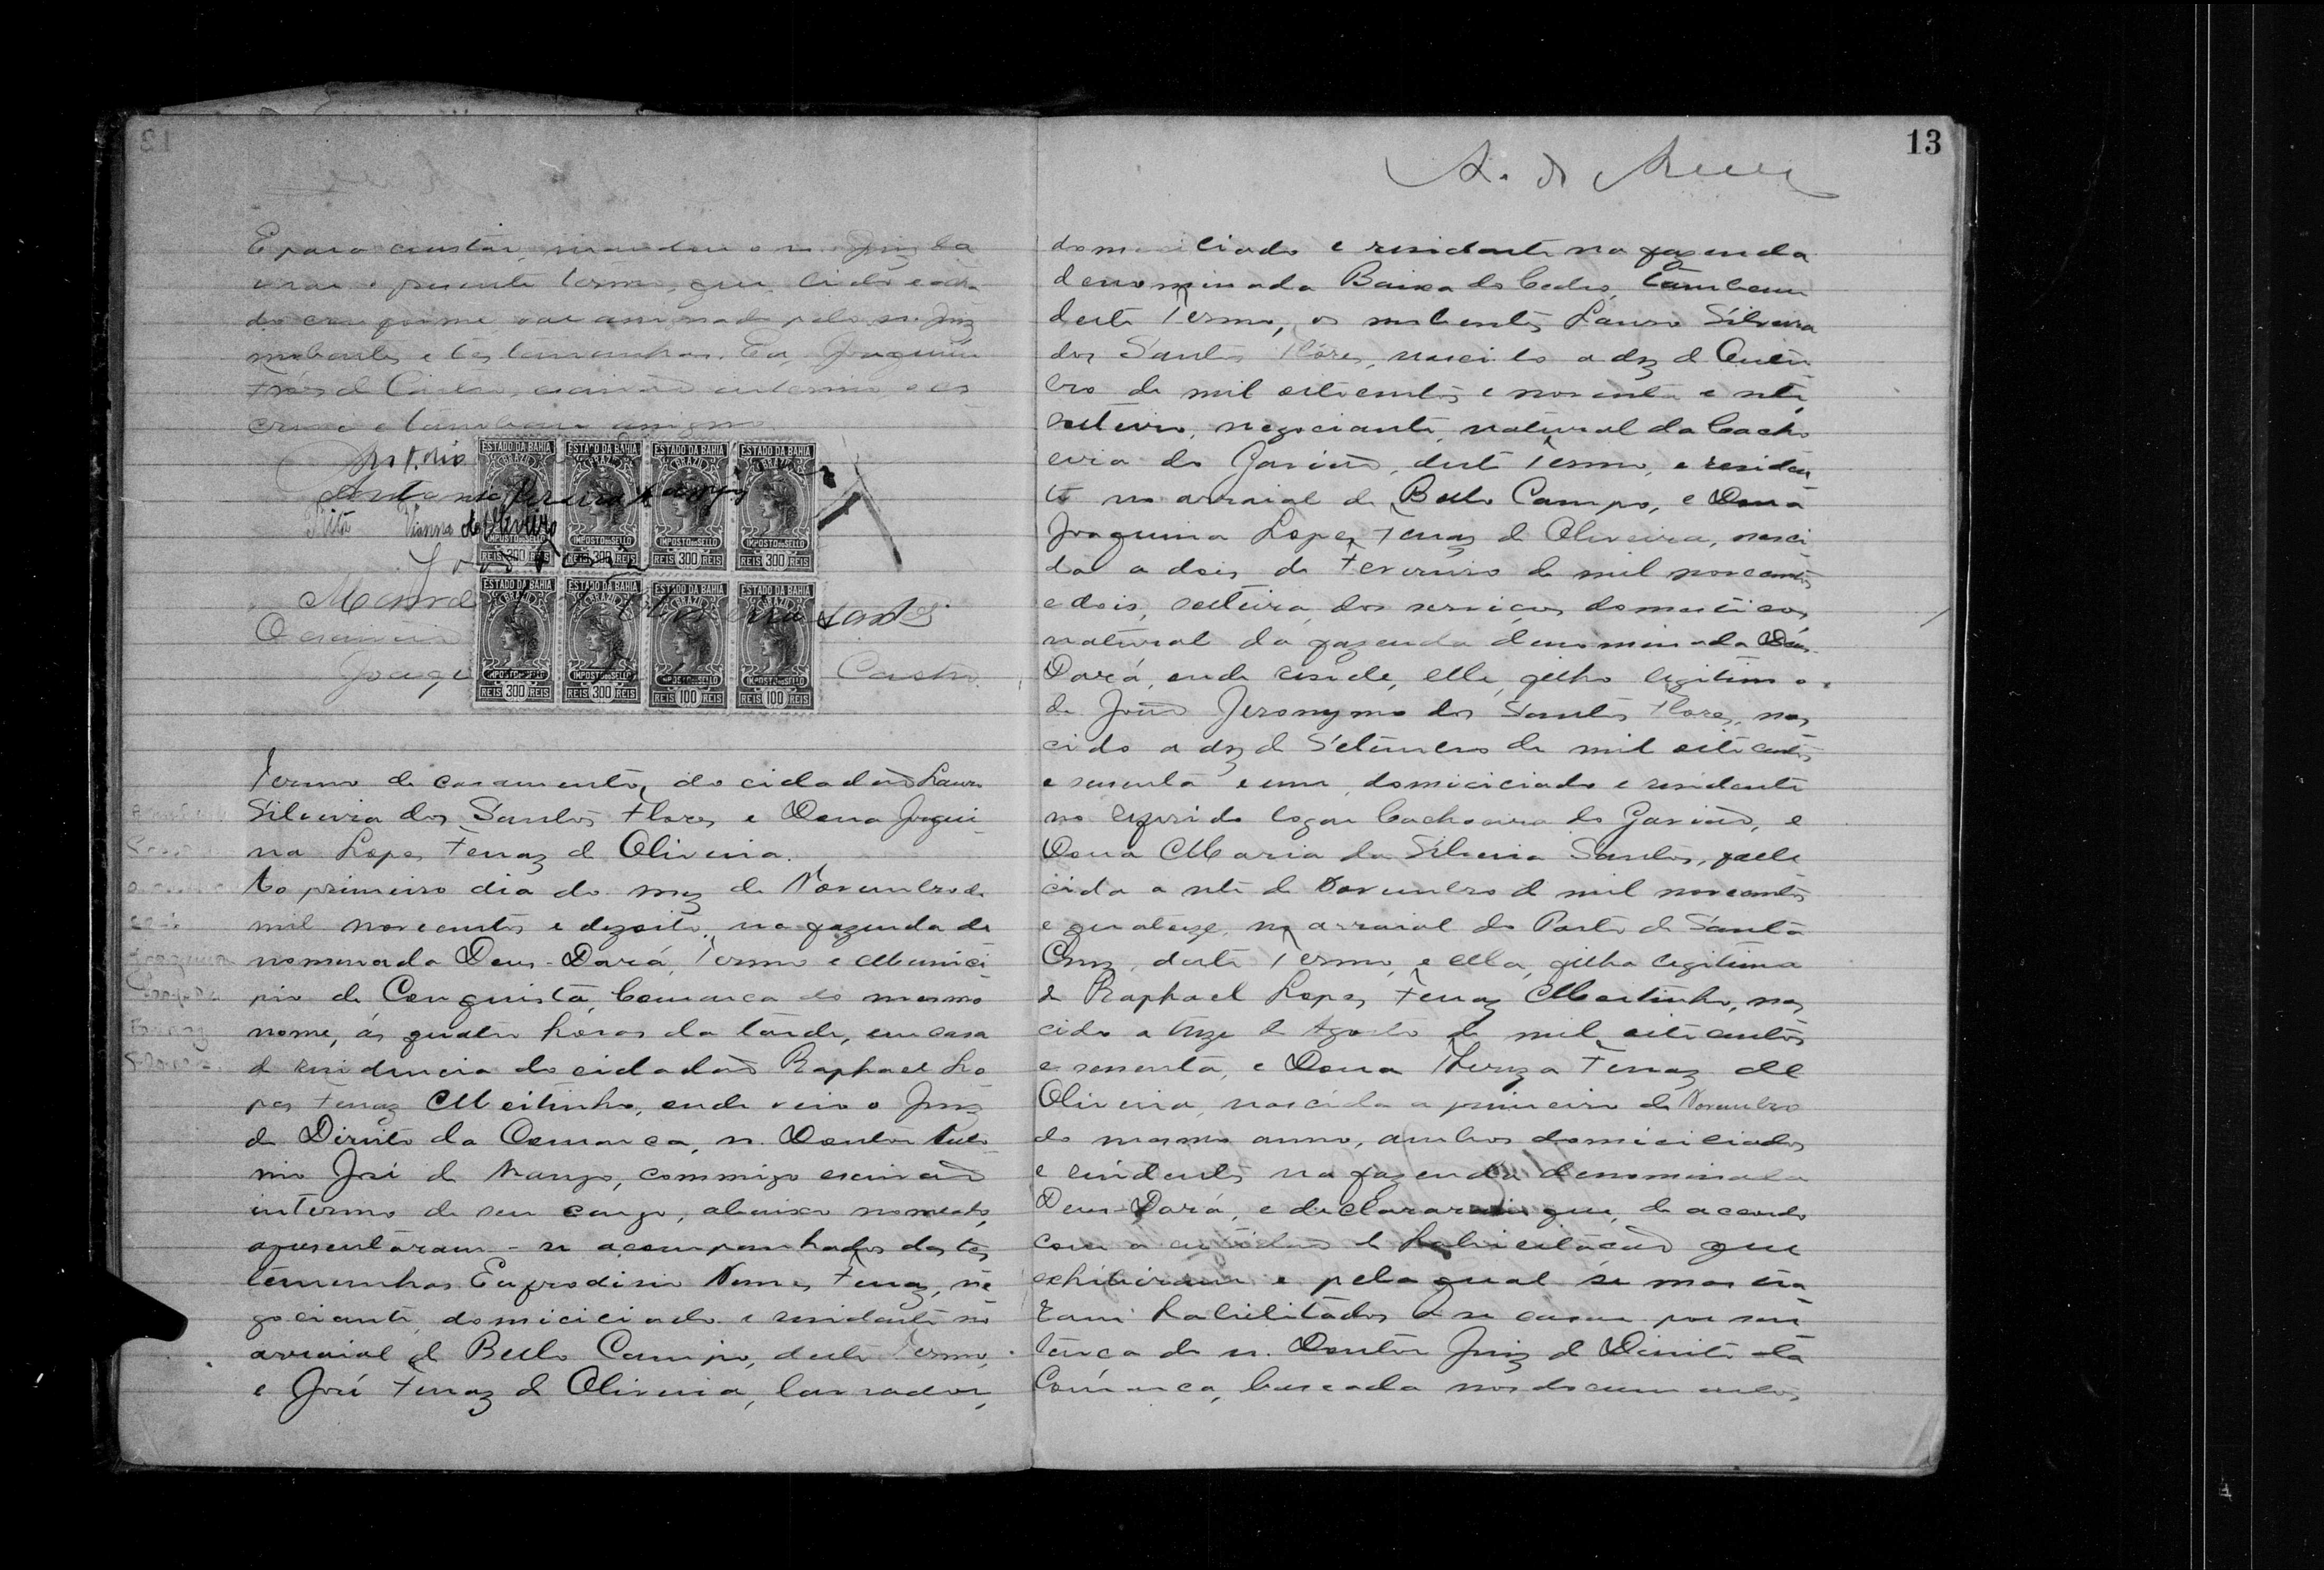 E para constar, mandou o m. Juiz la
vrar o presente termo, que, lido e acha
do conforme vae assignado pelo m. Juiz
nubentes e testemunhas. Eu, Joaquim
de Castro, escrivão interino, o es
crevi e tambem assigno.
Antonio
Antonia Pereira
Rita Vianna de Oliveira
Manoel Oliveira Santos
O escrivão
Joaqu Castro
ESTADO DA BAHIA BRAZIL IMPOSTO DO SELLO REIS 300 REIS
ESTADO DA BAHIA BRAZIL IMPOSTO DO SELLO REIS 300 REIS
ESTADO DA BAHIA BRAZIL IMPOSTO DO SELLO REIS 300 REIS
ESTADO DA BAHIA BRAZIL IMPOSTO DO SELLO REIS 300 REIS
ESTADO DA BAHIA BRAZIL IMPOSTO DO SELLO REIS 300 REIS
ESTADO DA BAHIA BRAZIL IMPOSTO DO SELLO REIS 300 REIS
ESTADO DA BAHIA BRAZIL IMPOSTO DO SELLO REIS 100 REIS
ESTADO DA BAHIA BRAZIL IMPOSTO DO SELLO REIS 100 REIS
Termo de casamento, do cidadão Lauro
Silveira dos Santos Flores e Dona Joaqui
na Lopes Ferraz de Oliveira.
Ao primeiro dia do mez de Novembro de
mil novecentos e dezoito, na fazenda de
nominada Deus-Dará, Termo e Munici
pio de Conquista, Comarca do mesmo
nome, ás quatro horas da tarde, em casa
de residencia do cidadão Raphael Lo
pes Ferraz Meitinho, onde veio o Juiz
de Direito da Comarca, m. Doutor Anto
nio José de Araujo, commigo escrivão
interino de seu cargo, abaixo nomeado,
apresentaram-se acompanhados das tes
temunhas Eufrodisio Nunes Ferraz, ne
gociante, domiciciado e residente no
arraial de Bello Campo, deste Termo,
e José Ferraz de Oliveira, lavrador,
13
domiciliado e residente na fazenda
denominada Baixa do Cedro, tambem
deste Termo, os nubentes Lauro Silveira
dos Santos Flores, nascido a dez de Outu
bro de mil oitocentos e noventa e sete,
solteiro, negociante, natural da Cacho
eira do Gavião, deste Termo, e residen
te no arraial de Bello Campo, e Dona
Joaquina Lopes Ferraz de Oliveira, nasci
da a dois de Fevereiro de mil novecentos
e dois, solteira, dos serviços domesticos,
natural da fazenda denominada Deus-
Dará, onde reside, elle, filho legitimo
de João Jeronymo dos Santos Flores, nas
cido a dez de Setembro de mil oitocentos
e sessenta e um, domiciciado e residente
no referido logar Cachoeira do Gavião, e
Dona Maria da Silveira Santos, falle
cida a sete de Novembro de mil novecentos
e quatorze, no arraial do Porto de Santa
Cruz, deste Termo, e ella, filha legitima
de Raphael Lopes Ferraz Meitinho, nas
cido a treze de Agosto de mil oitocentos
e sessenta, e Dona Thereza Ferraz de
Oliveira, nascida a primeiro de Novembro
do mesmo anno, ambos domiciciados
e residentes na fazenda denominada
Deus-Dará, e declararam que, de accordo
com a certidão de habilitação que
exhibiram e pela qual se mostra
ram habilitados a se casar por sen
tença do m. Doutor Juiz de Direito da
Comarca, baseada nos documentos,